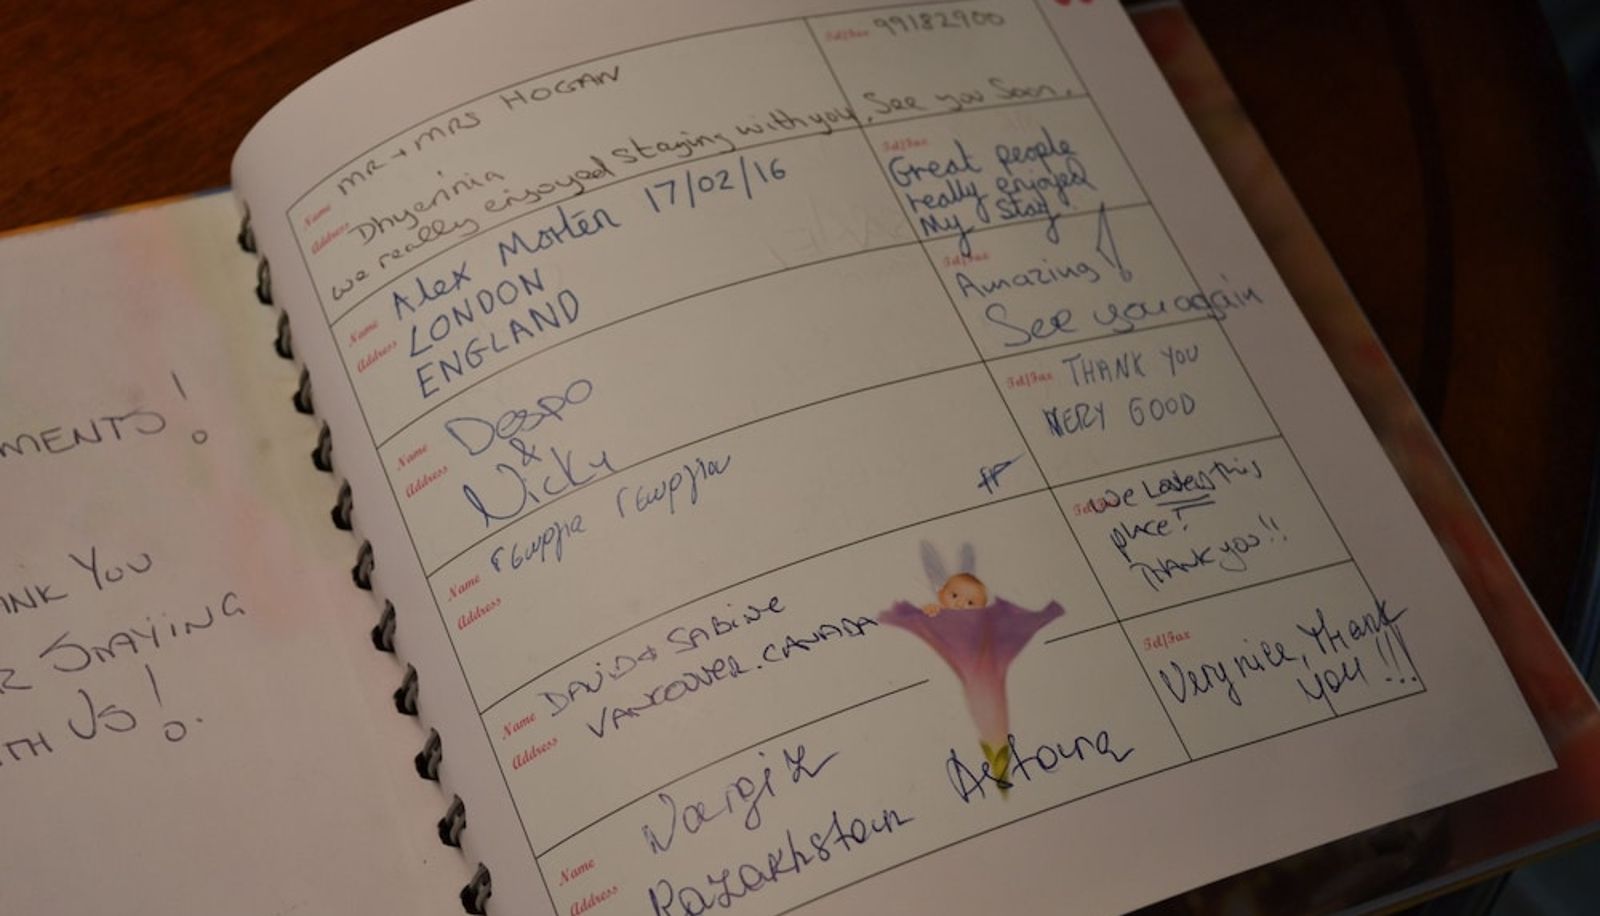 MENTS!
ANK YOU
R STAYING
TH US!
Name MR + MRS HOGAN
Tel/Fax 99182900
Address Dhyerinia
we really enjoyed Staying with you, See you Soon.
Name Alex Morten 17/02/16
Address LONDON
ENGLAND
Tel/Fax
Great people
really enjoyed
My Stay
Name Despo
&
Address Nicky
Tel/Fax
Amazing!
See you again
Name Γεωργία Γεωργίου
Address
Tel/Fax THANK YOU
VERY GOOD
Name DAVID & SABINE
Address VANCOUVER. CANADA
Tel/Fax We Loved this
place!
THANK you!!
Name Nargiz
Address Kazakhstan Astana
Tel/Fax
Very nice, Thank
you!!!